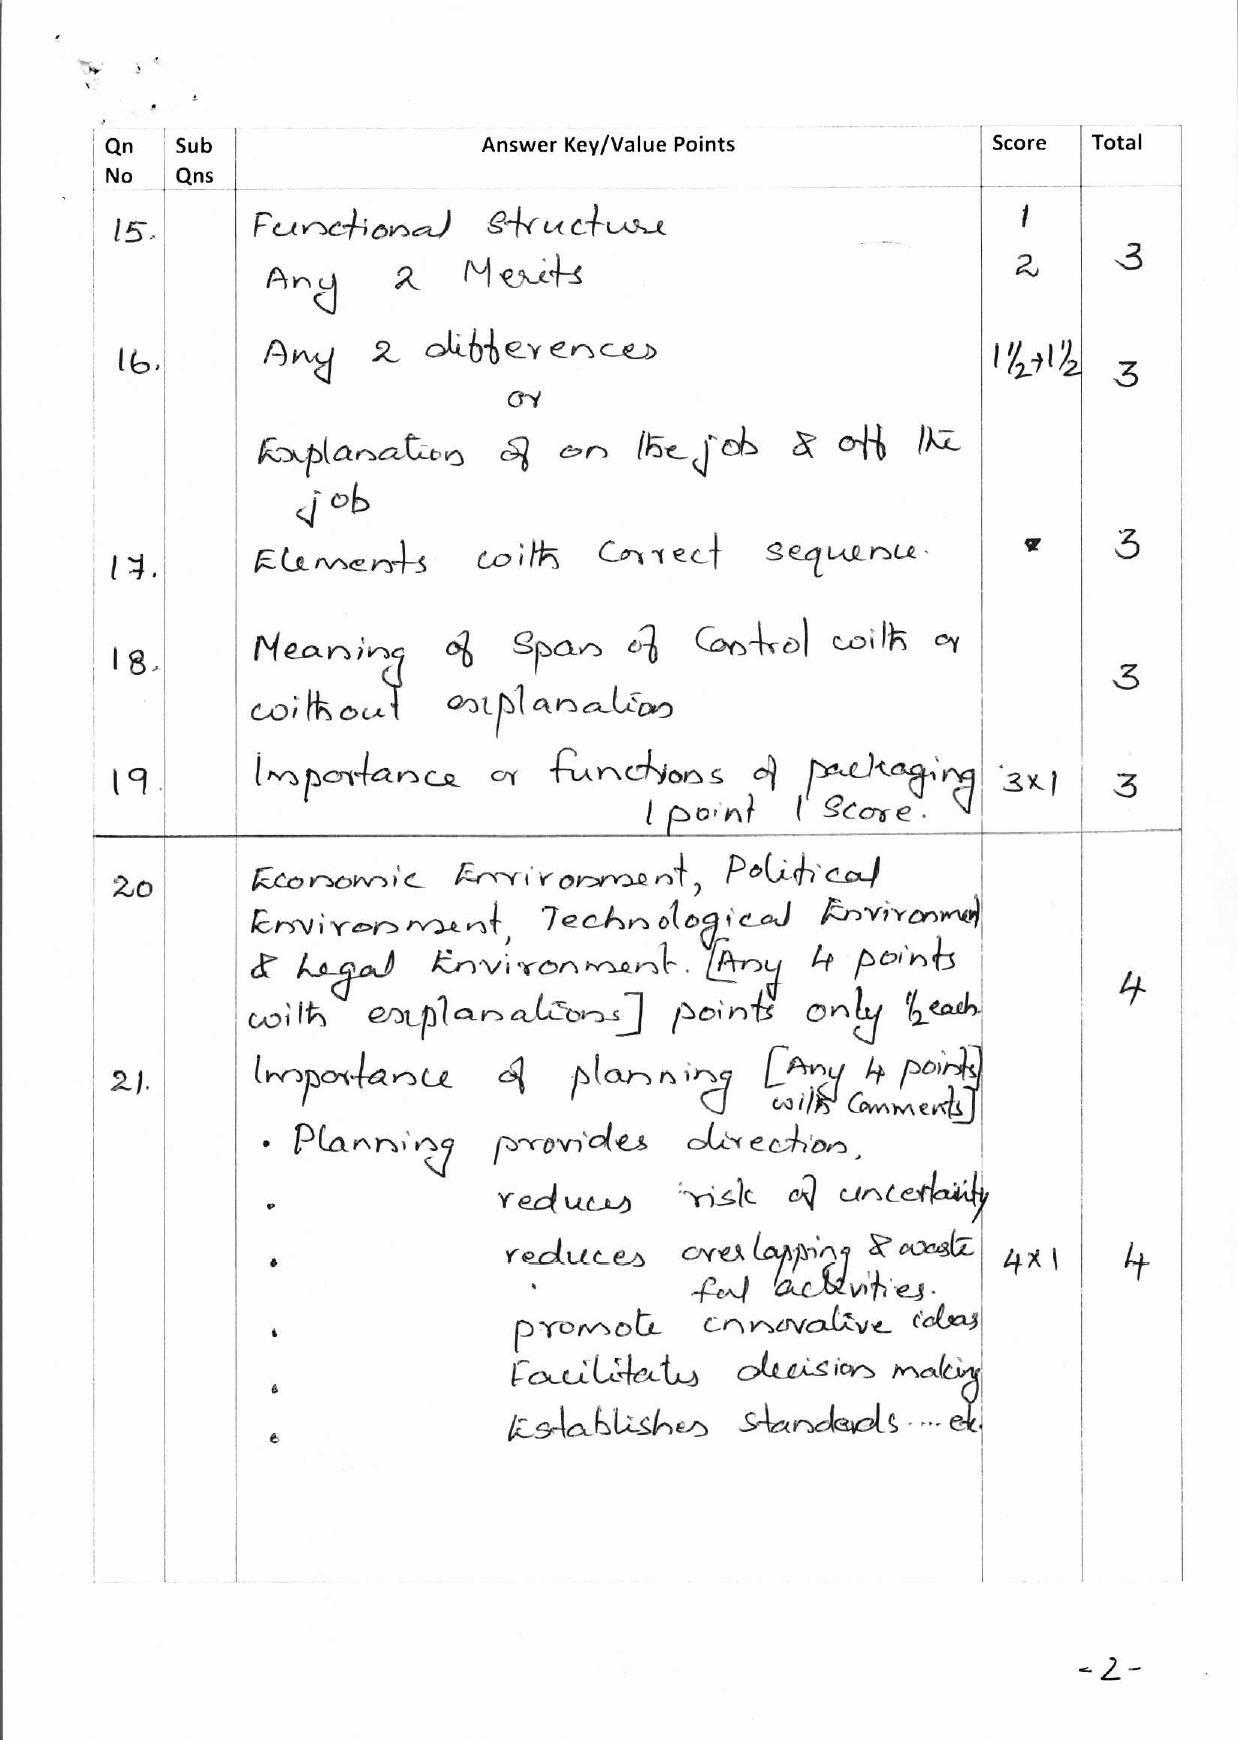 Qn No Sub Qns Answer Key/Value Points Score Total
15. Functional Structure 1
Any 2 Merits 2 3
16. Any 2 differences 1½+1½ 3
or
Explanation of on the job & off the
job
17. Elements with Correct sequence. 3
18. Meaning of Span of Control with or
without explanation 3
19. Importance or functions of packaging 3x1 3
1 point 1 Score.
20 Economic Environment, Political
Environment, Technological Environment
& Legal Environment. [Any 4 points 4
with explanations] points only ½ each.
21. Importance of planning [Any 4 points
with Comments]
• Planning provides direction,
• reduces risk of uncertainity
• reduces overlapping & waste 4x1 4
ful activities.
• promote innovative ideas
• Facilitates decision making
• Establishes standards .... etc.
- 2 -